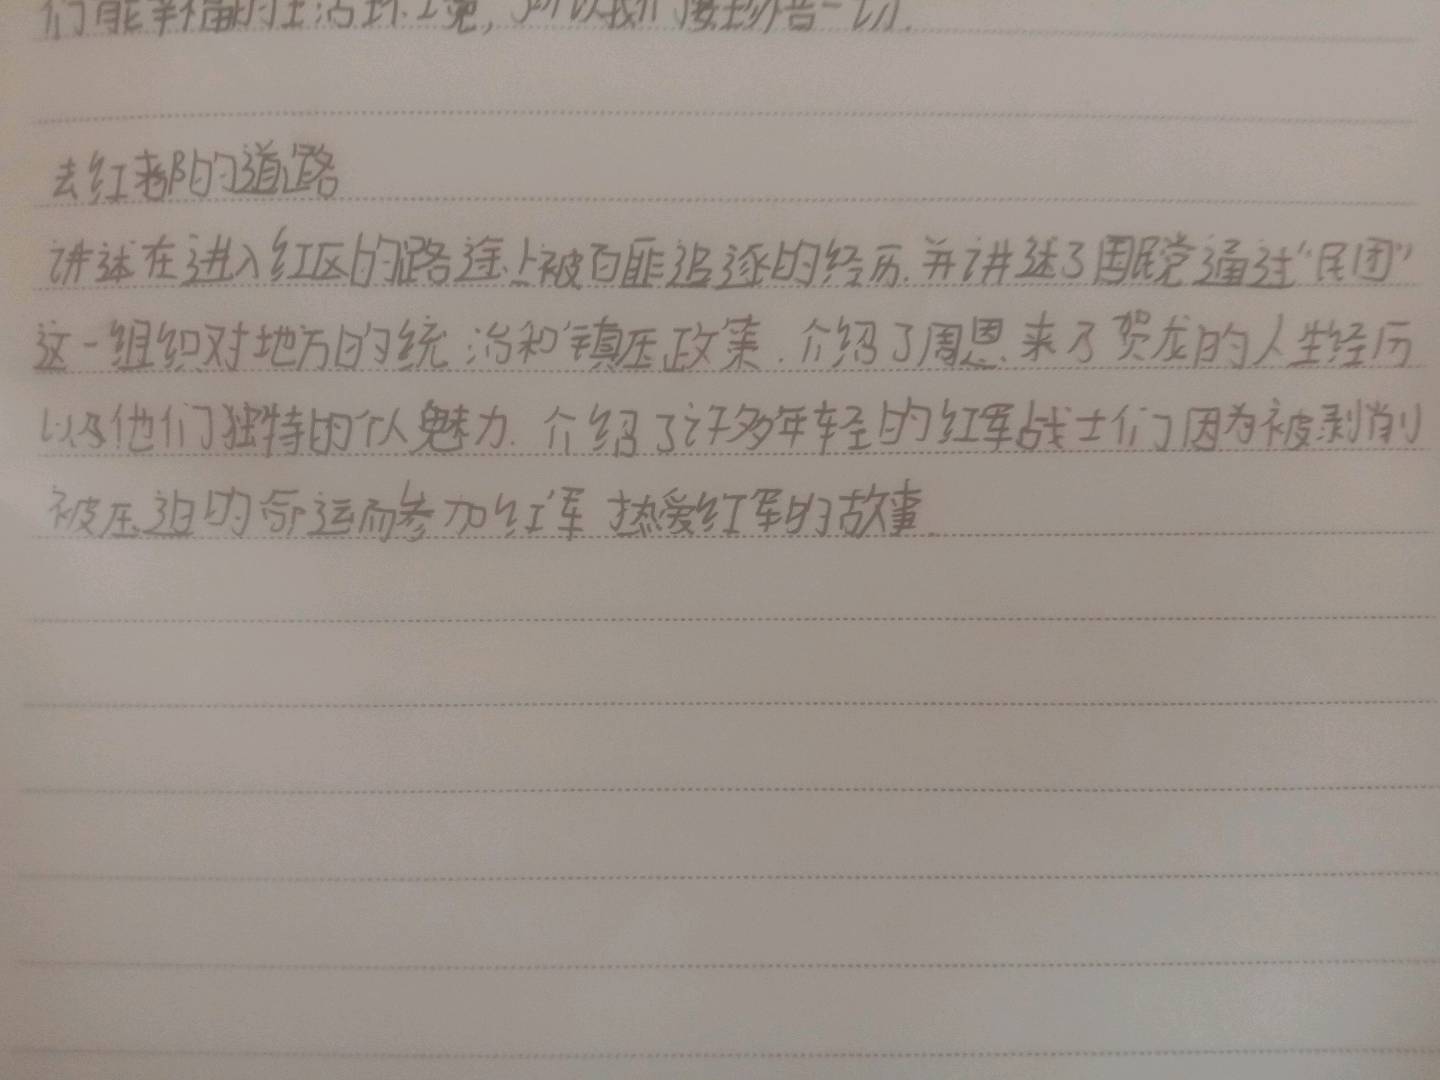 们能幸福的生活环境，所以我们要珍惜一切.
去红都的道路
讲述在进入红区的路途上被百匪追逐的经历.并讲述了国民党通过“民团”
这一组织对地方的统治和镇压政策.介绍了周恩来了贺龙的人生经历
以及他们独特的个人魅力.介绍了许多年轻的红军战士们因为被剥削
被压迫的命运而参加红军 热爱红军的故事.